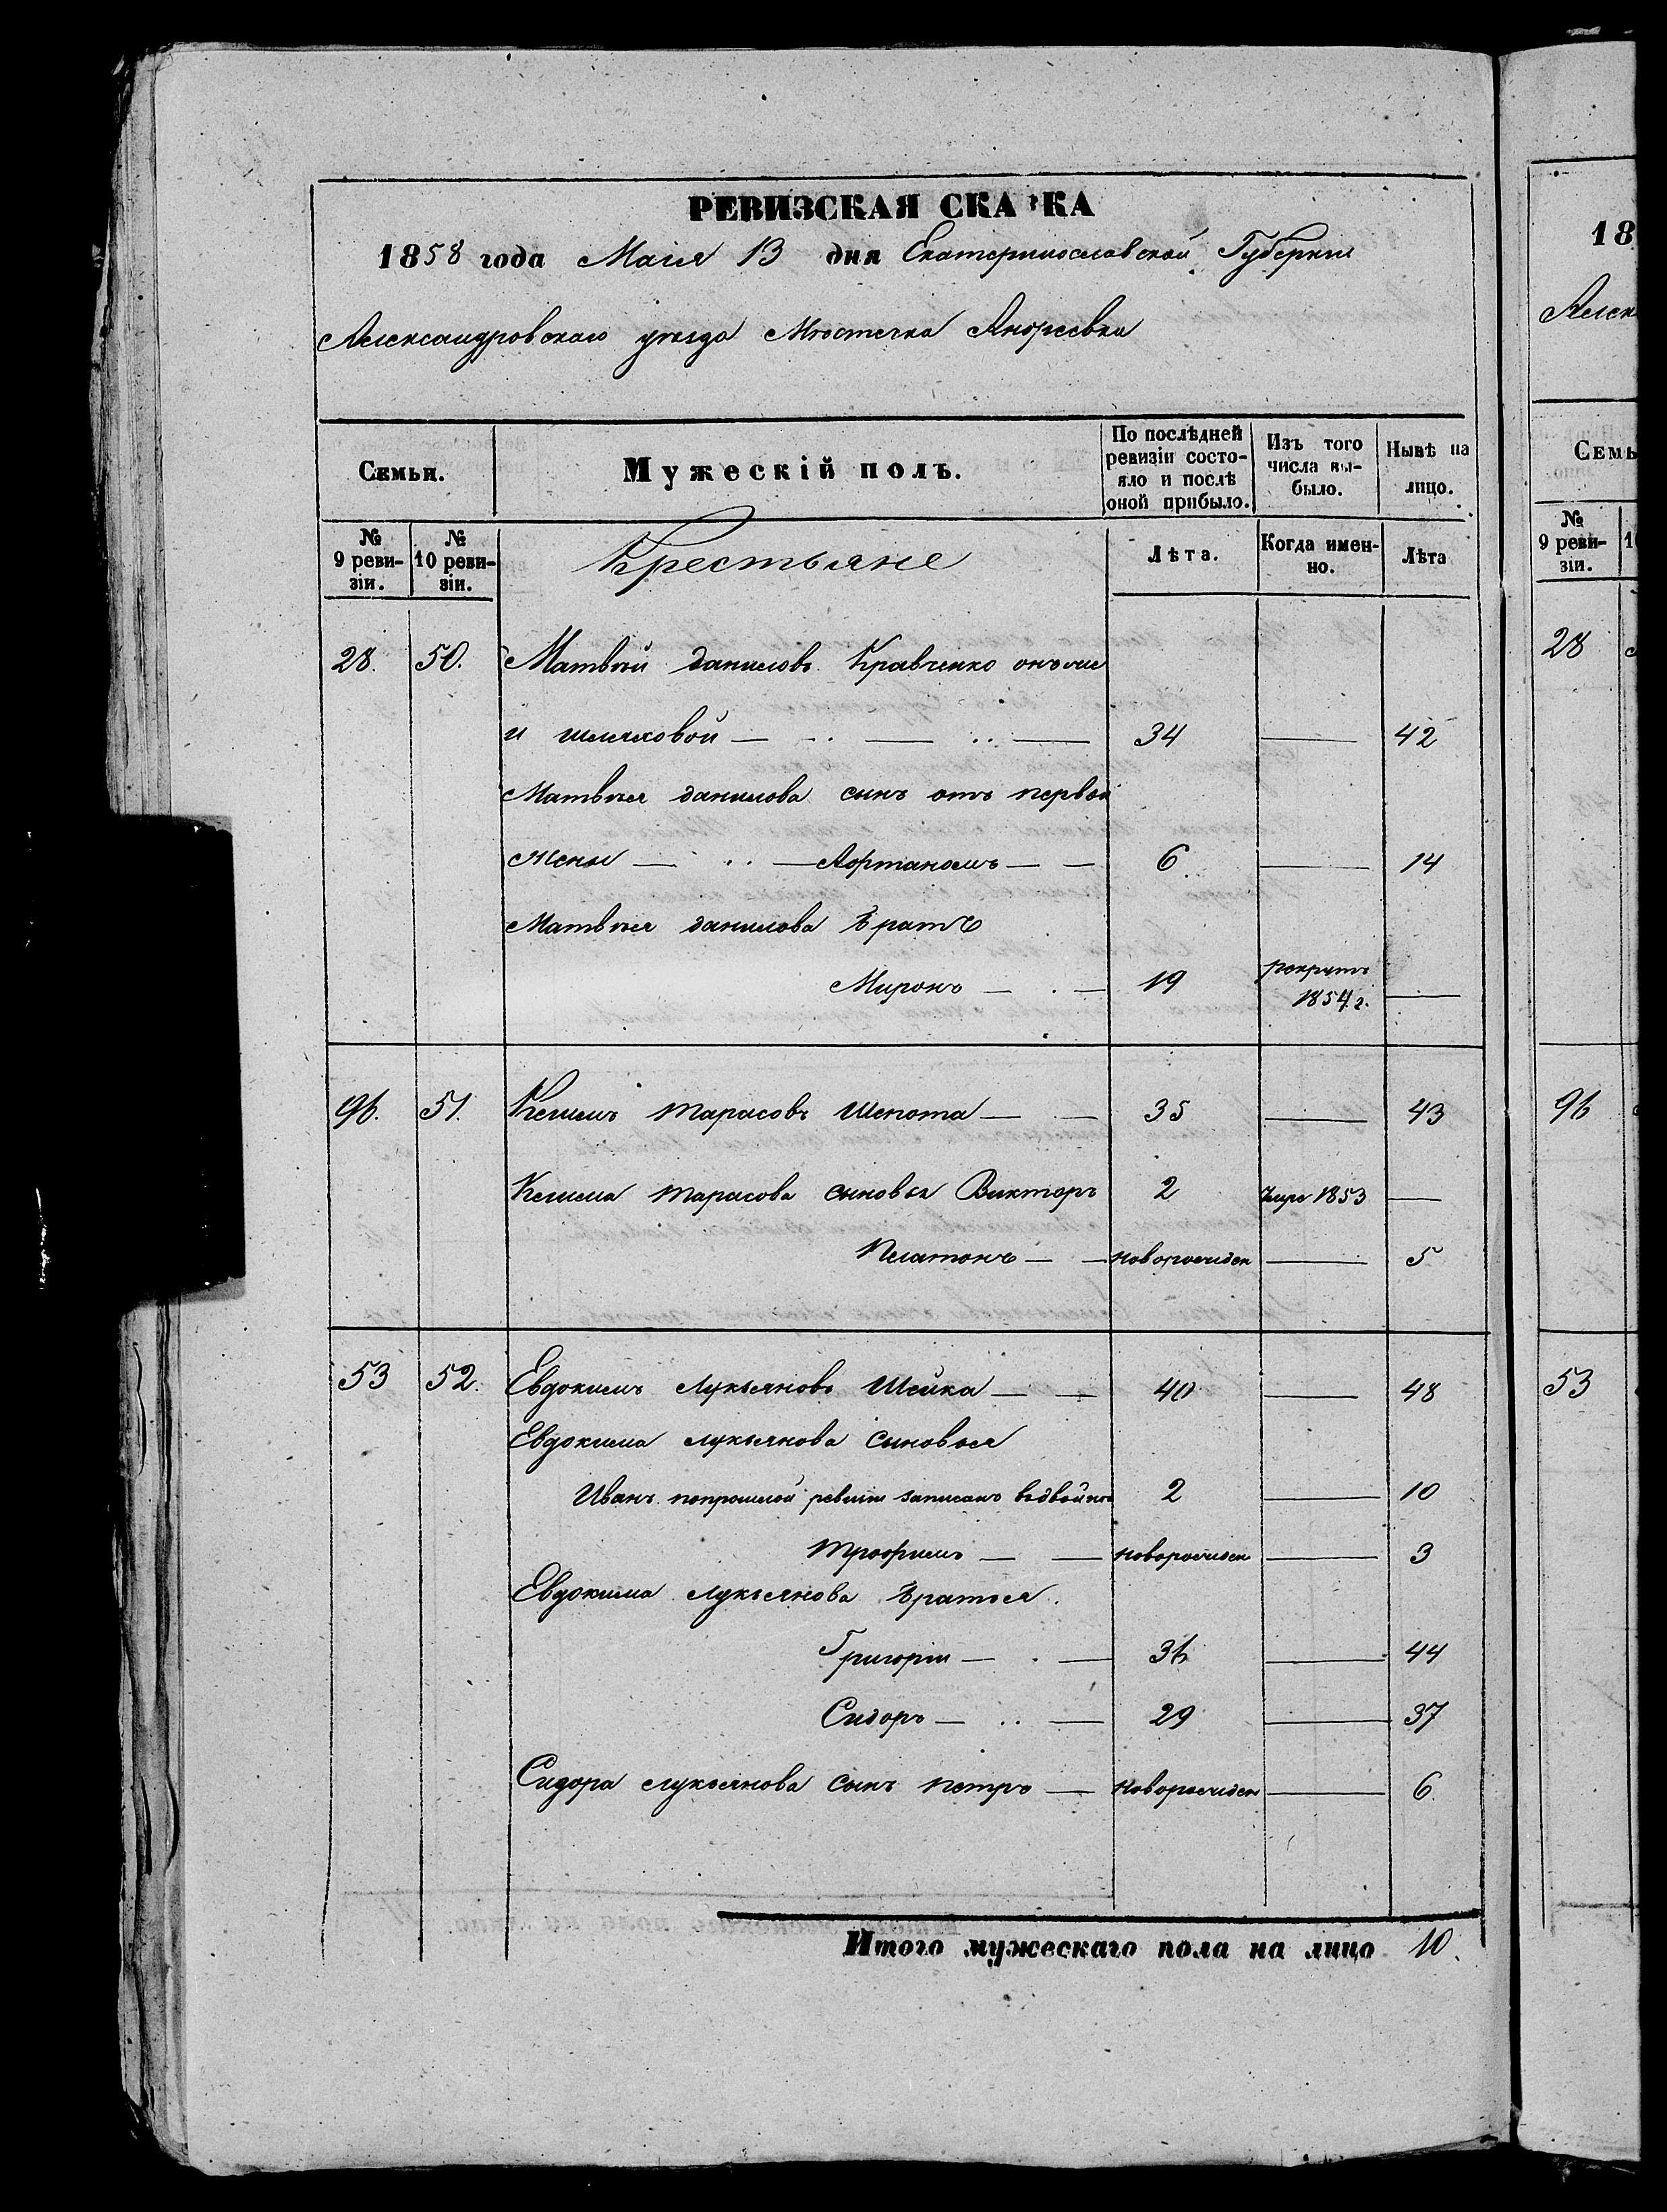 РЕВИЗСКАЯ СКАЗКА
1858 года Маія 13 дня Екатеринославской Губерніи
Александровскаго уезда Мѣстечка Андреевки
Семьи.
Мужескій полъ.
По послѣдней ревизіи состояло и послѣ оной прибыло.
Изъ того числа выбыло.
Нынѣ на лицо.
№ 9 ревизіи.
№ 10 ревизіи.
Крестьяне
Лѣта.
Когда именно.
Лѣта
28. 50. Матвѣй Даниловъ Кравченко онъ же
и шляховой 34 — 42
Матвѣя данилова сынъ отъ первой
жены — 6 — 14
Матвѣя данилова братъ
Миронъ 19 рекрутъ 1854 г. —
96. 51. Климъ Тарасовъ Шепота 35 — 43
Клима Тарасова сыновья Викторъ 2 умре 1853 —
Платонъ новорожден — 5
53 52. Евдокимъ Лукьяновъ Шейка 40 — 48
Евдокима лукьянова сыновья
Иванъ попрошлой ревизіи записанъ 2 — 10
Трофимъ новорожден — 3
Евдокима лукьянова братья.
Григорій 36 — 44
Сидоръ 29 — 37
Сидора лукьянова сынъ петръ новорожден — 6.
Итого мужескаго пола на лицо 10.
18
Алек
Семь
№ 9 ревизіи.
1
28
96
53